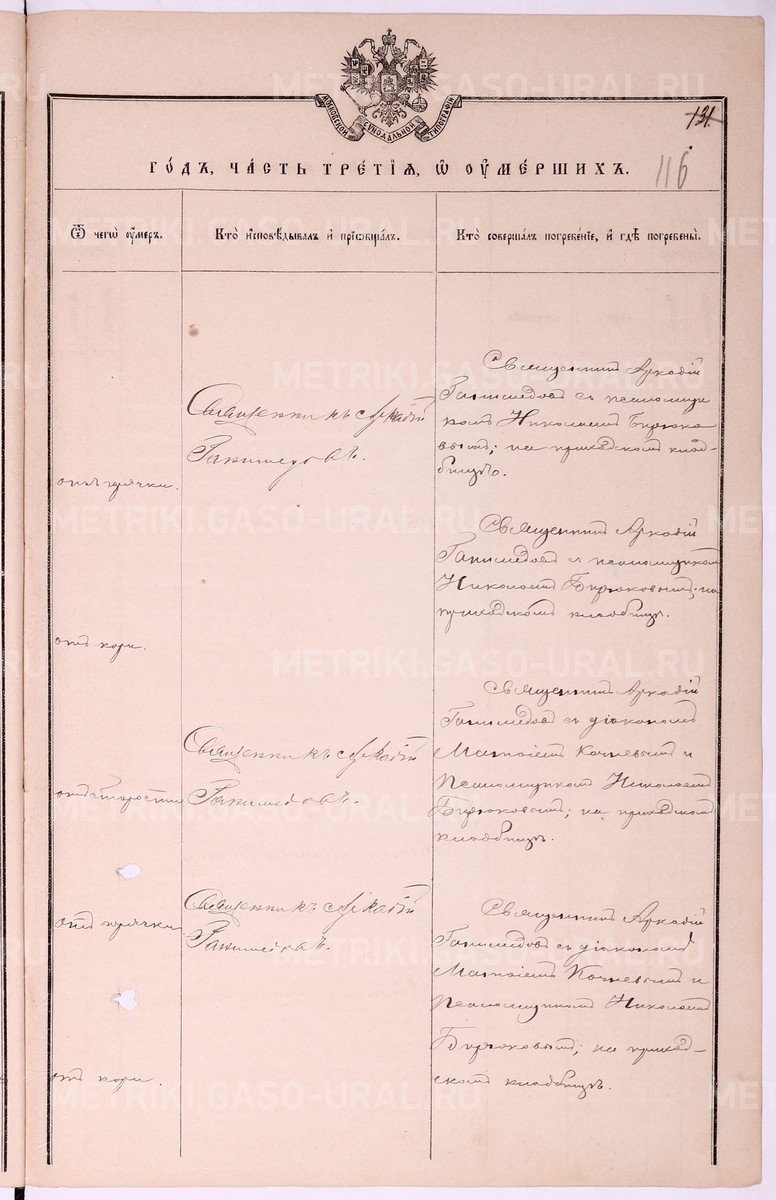 МОСКОВСКОЙ СѴНОДАЛЬНОЙ ТИПОГРАФІИ
131.
116
ГО́ДЪ, ЧА́СТЬ ТРЕ́ТІѦ, Ѡ ОУ҆МЕ́РШИХЪ.
Ѿ чегѡ̀ оу҆́меръ.
Кто̀ и҆сповѣ́дывалъ и҆ прїѡбща́лъ.
Кто̀ соверша́лъ погребе́нїе, и҆ гдѣ̀ погребены̀.
отъ горячки.
Священникъ Аркадій
Ганимедовъ.
Священникъ Аркадій
Ганимедовъ съ псаломщи
комъ Николаемъ Бирюко
вымъ; на приходскомъ клад-
бищѣ.
отъ кори.
Священникъ Аркадій
Ганимедовъ съ псаломщикомъ
Николаемъ Бирюковымъ; на
приходскомъ кладбищѣ.
отъ старости
Священникъ Аркадій
Ганимедовъ.
Священникъ Аркадій
Ганимедовъ съ діакономъ
Матѳіемъ Кочневымъ и
Псаломщикомъ Николаемъ
Бирюковымъ; на приходскомъ
кладбищѣ.
отъ горячки
Священникъ Аркадій
Ганимедовъ.
отъ кори.
Священникъ Аркадій
Ганимедовъ съ діакономъ
Матѳіемъ Кочневымъ и
Псаломщикомъ Николаемъ
Бирюковымъ; на приход-
скомъ кладбищѣ.
METRIKI.GASO-URAL.RU